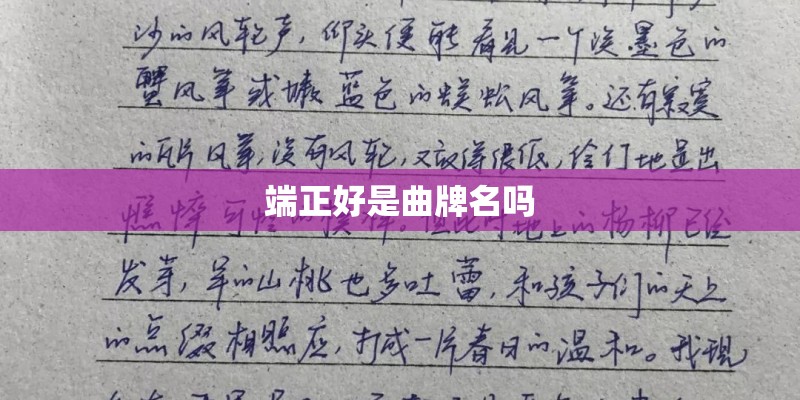 沙的风轮声，仰头便能看见一个淡墨色的
蟹风筝或嫩蓝色的蜈蚣风筝。还有寂寞
的瓦片风筝，没有风轮，又放得很低，伶仃地显出
端正好是曲牌名吗
憔悴可怜的模样。但此时地上的杨柳已经
发芽，早的山桃也多吐蕾，和孩子们的天上
的点缀相照应，打成一片春日的温和。我现